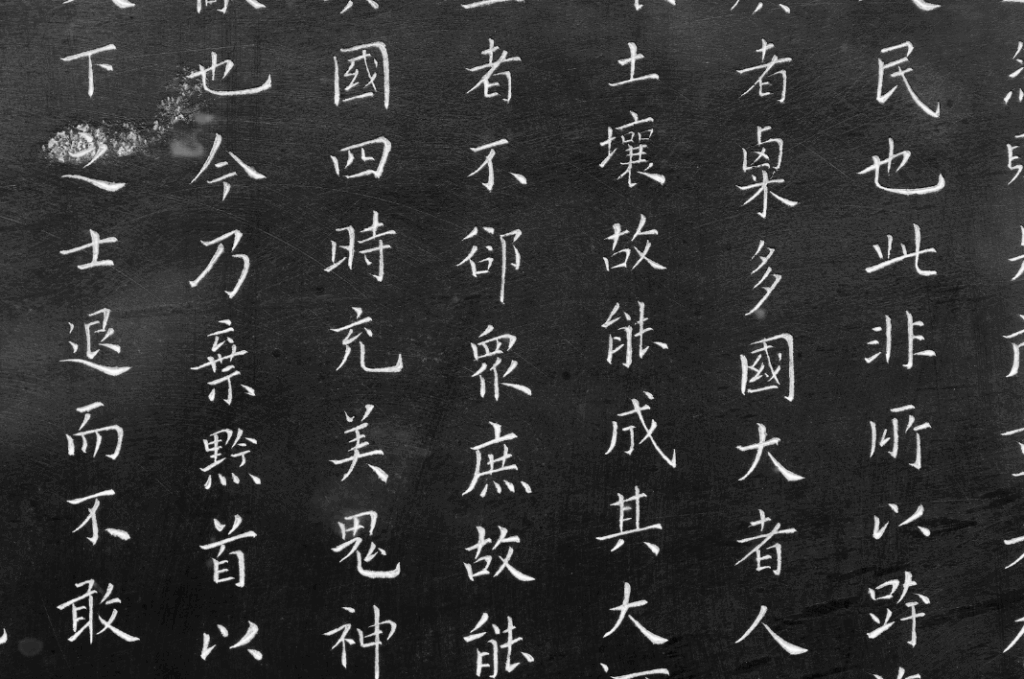 民也此非所以跨
者粟多國大者人
土壤故能成其大
者不郤眾庶故能
國四時充美鬼神
也今乃棄黔首以
下之士退而不敢